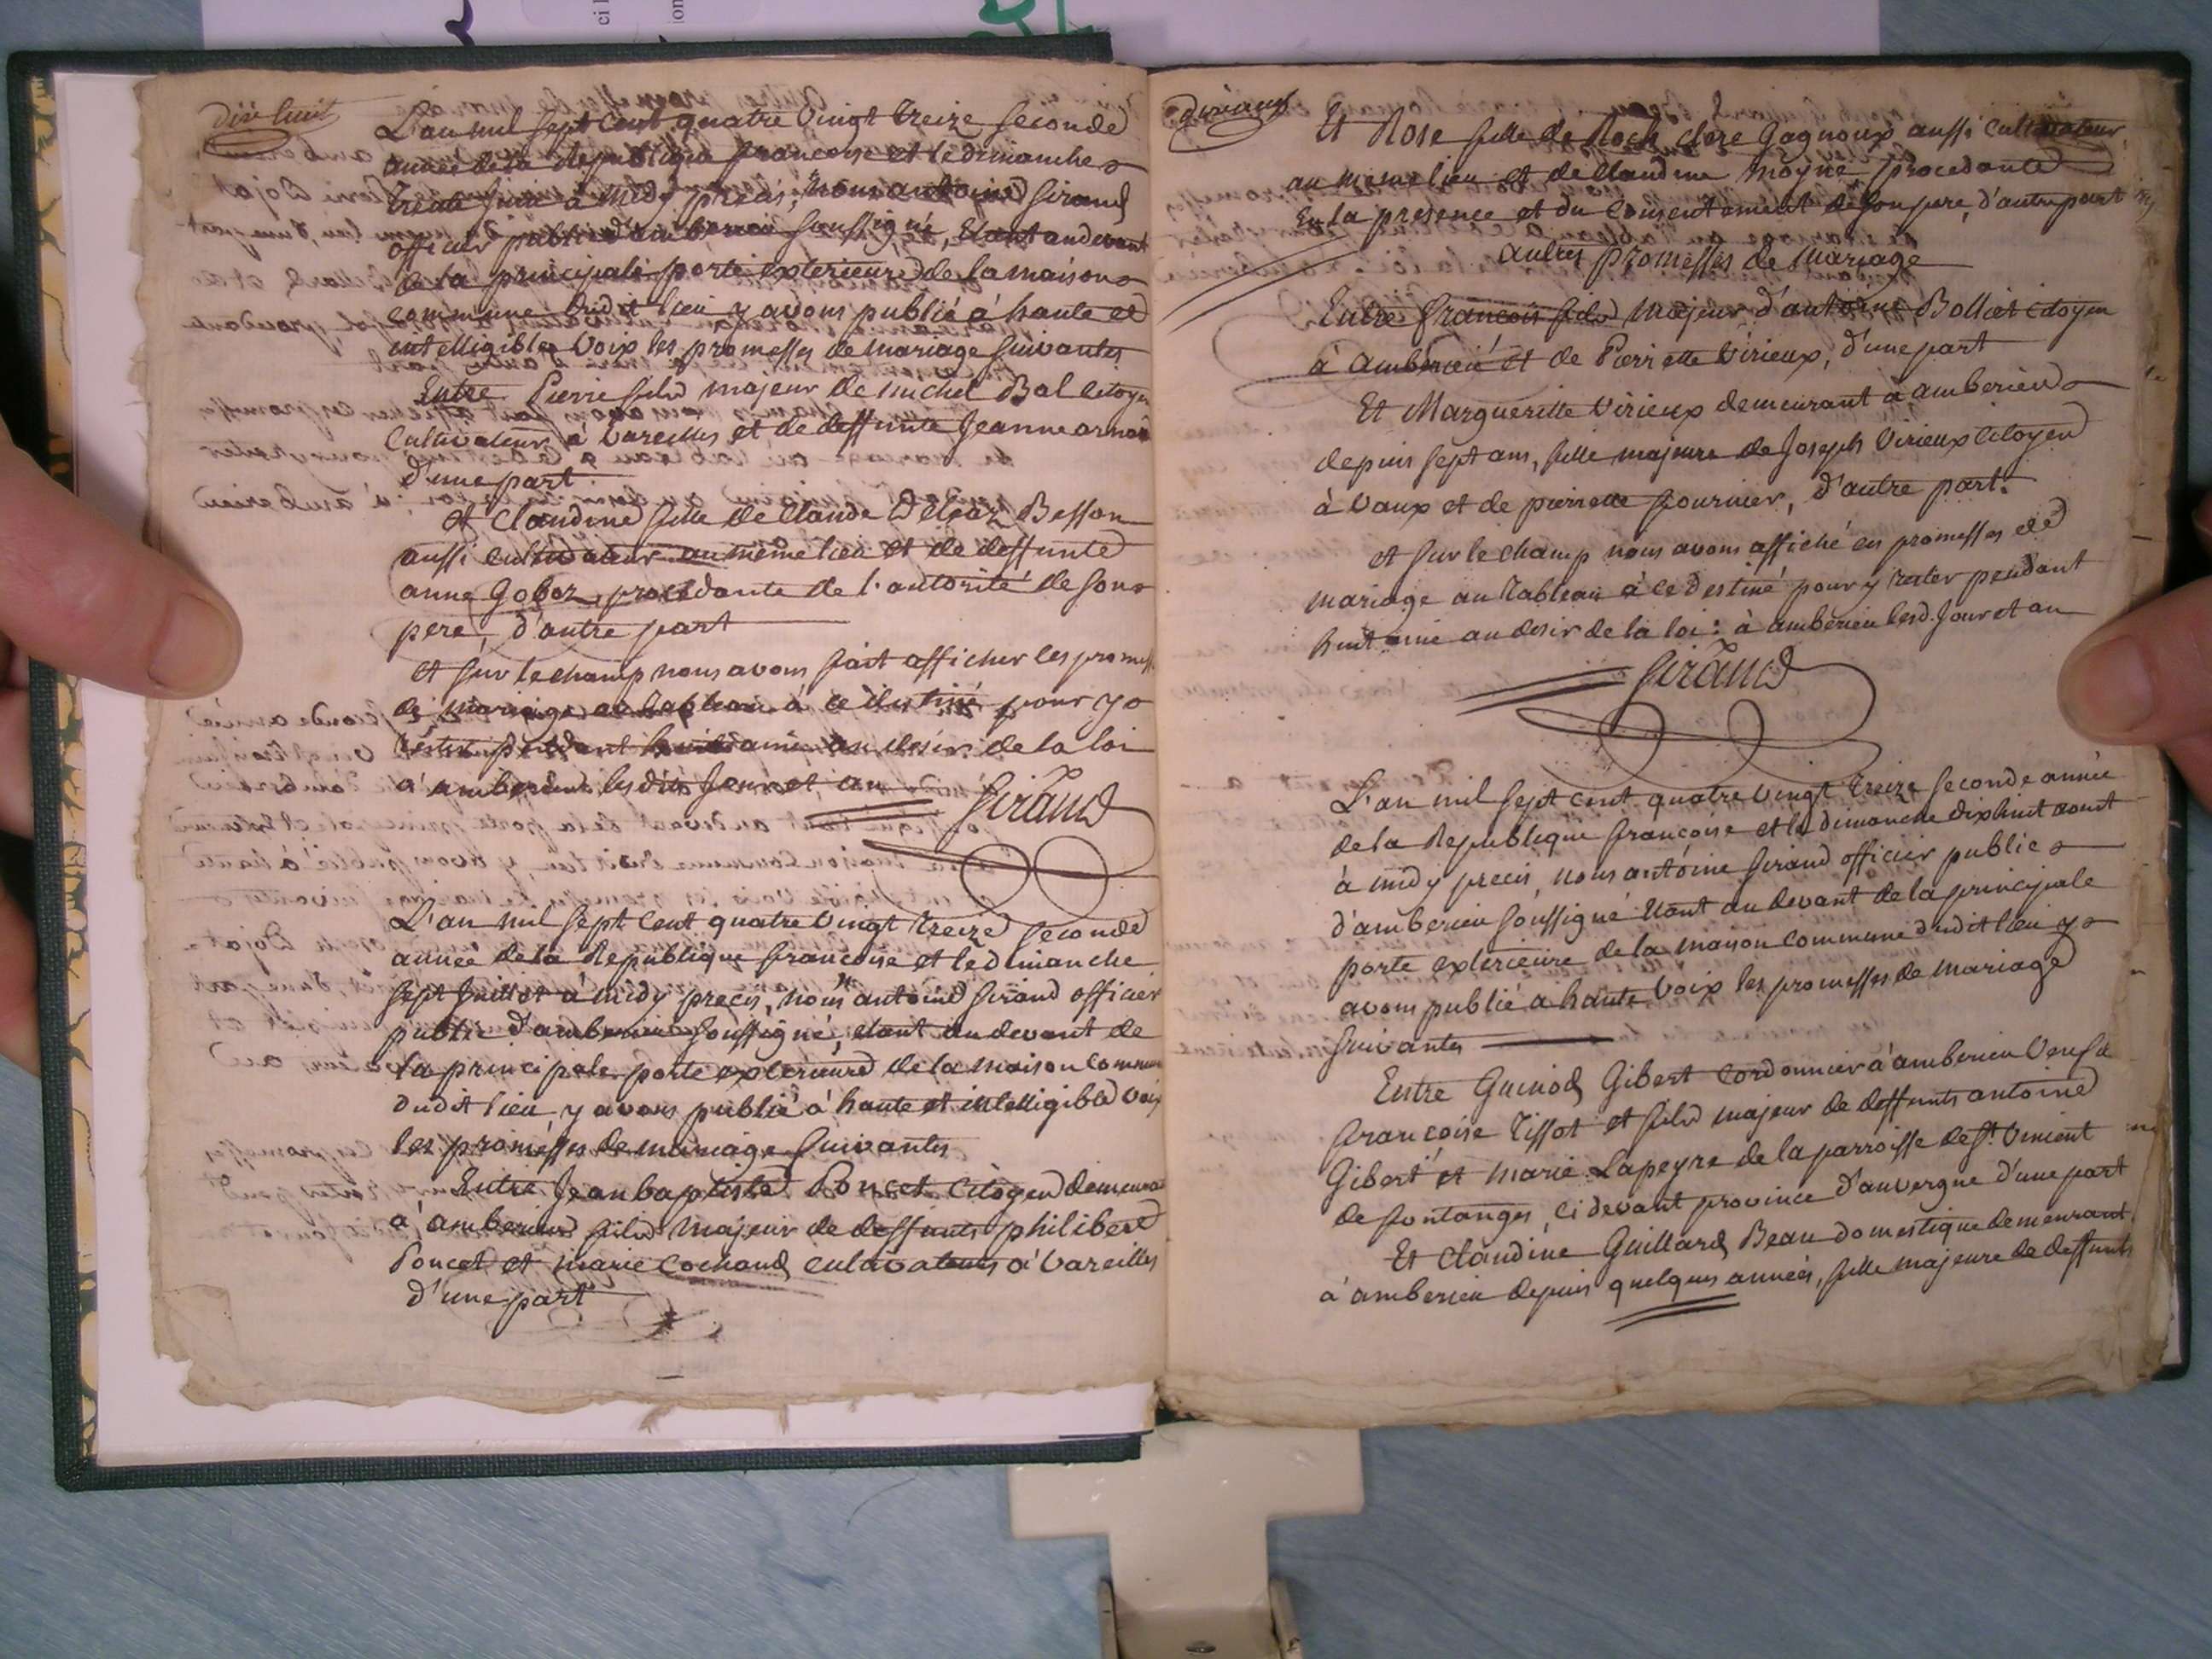 dix huit
L'an mil sept cent quatre vingt treize seconde
année de la Republique francoise et le dimanche
trente juin à midy precis, nous antoine Girand
officier public d'amberieu soussigné, etant au devant
de la principale porte exterieure de la maison
commune dudit lieu y avons publié à haute et
intelligible voix les promesses de mariage suivantes
Entre Pierre fils majeur de michel Bal citoyen
cultivateur à Vareilles et de deffunte Jeanne
d'une part
et Claudine fille de Claude Deleaz Besson
aussi cultivateur au même lieu et de deffunte
anne Goboz, procedante de l'autorité de son
pere, d'autre part
et sur le champ nous avons fait afficher les
de mariage au tableau à ce destiné pour y
rester pendant huitaine au desir de la loi
à amberieu lesdits jour et an
Girand
L'an mil sept cent quatre vingt treize seconde
année de la Republique francoise et le dimanche
sept juillet à midy precis, nous antoine Girand officier
public d'amberieu soussigné, etant au devant de
la principale porte exterieure de la maison commune
dudit lieu y avons publié à haute et intelligible voix
les promesses de mariage suivantes
Entre Jean baptiste Poncet citoyen
à amberieu fils majeur de deffunts philibert
Poncet et marie Cochand cultivateurs à Vareilles
d'une part
dix neuf
Et Rose fille de Roch cloze Gagnoux aussi cultivateur
au meme lieu et de Claudine moyne procedante
En la presence et du consentement de son pere, d'autre part
autres promesses de mariage
Entre francois fils majeur d'antoine Bolliet citoyen
à amberieu et de Pierrette Virieux, d'une part
Et Marguerite Virieux demeurant à amberieu
depuis sept ans, fille majeure de Joseph Virieux citoyen
à Vaux et de pierrette fournier, d'autre part.
et sur le champ nous avons affiché les promesses de
mariage au tableau à ce destiné pour y rester pendant
huitaine au desir de la loi : à amberieu lesd. jour et an
Girand
L'an mil sept cent quatre vingt treize seconde année
de la Republique françoise et le dimanche dixhuit aout
à midy precis, nous antoine Girand officier public
d'amberieu soussigné etant au devant de la principale
porte exterieure de la maison commune dudit lieu y
avons publié a haute voix les promesses de mariage
suivantes
Entre Guinod Gibert cordonnier à amberieu veuf de
francoise Tissot et fils majeur de deffunts antoine
Gibert et marie Lapeyre de la parroisse de St. Vincent
de fontanges, ci devant province d'auvergne d'une part
Et Claudine Guillard Beau domestique demeurant
à amberieu depuis quelques années, fille majeure de deffunts